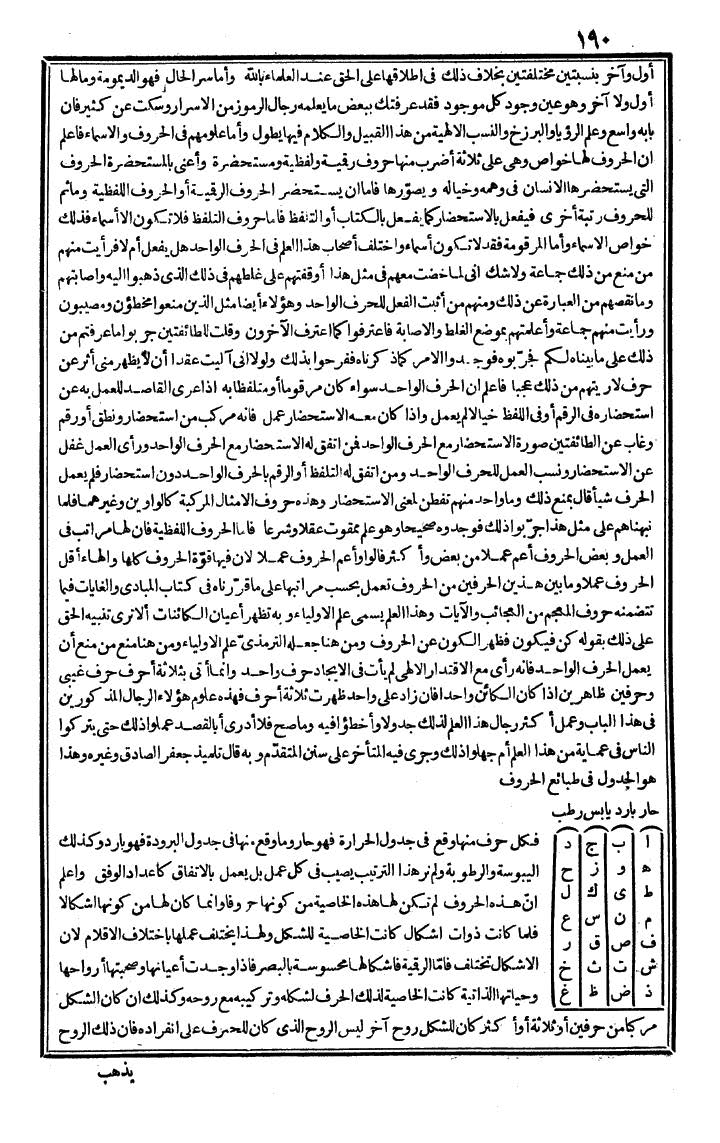 ١٩٠
أول وآخر بنسبتين مختلفتين بخلاف ذلك في اطلاقها على الحق عند العلماء بالله وأما سر الحال فهو الديمومة ومالها
أول ولا آخر وهو عين وجود كل موجود فقد عرفتك ببعض ما يعلمه رجال الرموز من الاسرار وسكت عن كثير فان
بابه واسع وعلم الرؤيا والبرزخ والنسب الالهية من هذا القبيل والكلام فيها يطول وأما علومهم في الحروف والاسماء فاعلم
ان الحروف لها خواص وهى على ثلاثة أضرب منها حروف رقمية ولفظية ومستحضرة وأعنى بالمستحضرة الحروف
التى يستحضرها الانسان فى وهمه وخياله ويصوّرها فاما ان يستحضر الحروف الرقمية أو الحروف اللفظية وماثم
للحروف رتبة أخرى فيفعل بالاستحضار كما يفعل بالكتاب أو التلفظ فاما حروف التلفظ فلا تكون الا أسماء فذلك
خواص الاسماء وأما المرقومة فقد لا تكون أسماء واختلف أصحاب هذا العلم فى الحرف الواحد هل يفعل أم لا فرأيت منهم
من منع من ذلك جماعة ولا شك انى لما خضت معهم فى مثل هذا أوقفتهم على غلطهم فى ذلك الذى ذهبوا اليه واصابتهم
وما نقصهم من العبارة عن ذلك ومنهم من أثبت الفعل للحرف الواحد وهؤلاء أيضا مثل الذين منعوا مخطؤن ومصيبون
ورأيت منهم جماعة وأعلمتهم بموضع الغلط والاصابة فاعترفوا كما اعترف الآخرون وقلت للطائفتين جربوا ما عرفتم من
ذلك على ما بيناه لكم فجرّبوه فوجدوا الامر كما ذكرناه ففرحوا بذلك ولولا انى آليت عقدا أن لا يظهر منى أثر عن
حرف لاريتهم من ذلك عجبا فاعلم ان الحرف الواحد سواء كان مرقوما أو متلفظا به اذا عرى القاصد للعمل به عن
استحضاره فى الرقم أو فى اللفظ خيالا لم يعمل واذا كان معه الاستحضار عمل فانه مركب من استحضار ونطق أو رقم
وغاب عن الطائفتين صورة الاستحضار مع الحرف الواحد فمن اتفق له الاستحضار مع الحرف الواحد ورأى العمل غفل
عن الاستحضار ونسب العمل للحرف الواحد ومن اتفق له التلفظ أو الرقم بالحرف الواحد دون استحضار فلم يعمل
الحرف شيأ قال بمنع ذلك وما واحد منهم تفطن لمعنى الاستحضار وهذه حروف الامثال المركبة كالواوين وغيرهما فلما
نبهناهم على مثل هذا جرّبوا ذلك فوجدوه صحيحا وهو علم ممقوت عقلا وشرعا فاما الحروف اللفظية فان لها مراتب فى
العمل وبعض الحروف أعم عملا من بعض وأكثر فالواو أعم الحروف عملا لان فيها قوّة الحروف كلها والهاء أقل
الحروف عملا وما بين هذين الحرفين من الحروف تعمل بحسب مراتبها على ما قرّرناه فى كتاب المبادى والغايات فيما
تتضمنه حروف المعجم من العجائب والآيات وهذا العلم يسمى علم الاولياء وبه تظهر أعيان الكائنات ألا ترى تنبيه الحق
على ذلك بقوله كن فيكون فظهر الكون عن الحروف ومن هنا جعله الترمذى علم الاولياء ومن هنا منع من منع أن
يعمل الحرف الواحد فانه رأى مع الاقتدار الالهى لم يأت فى الايجاد حرف واحد وانما أتى بثلاثة أحرف حرف غيبى
وحرفين ظاهرين اذا كان الكائن واحدا فان زاد على واحد ظهرت ثلاثة أحرف فهذه علوم هؤلاء الرجال المذكورين
فى هذا الباب وعمل أكثر رجال هذا العلم لذلك جدولا وأخطؤا فيه وما صح فلا أدرى أبالقصد عملوا ذلك حتى يتركوا
الناس فى عماية من هذا العلم أم جهلوا ذلك وجرى فيه المتأخر على سنن المتقدّم وبه قال تلميذ جعفر الصادق وغيره وهذا
هو الجدول فى طبائع الحروف
حار بارد يابس رطب
ا ب ج د
ه و ز ح
ط ى ك ل
م ن س ع
ف ص ق ر
ش ت ث خ
ذ ض ظ غ
فكل حرف منها وقع فى جدول الحرارة فهو حار وما وقع منها فى جدول البرودة فهو بارد وكذلك
اليبوسة والرطوبة ولم نر هذا الترتيب يصيب فى كل عمل بل يعمل بالاتفاق كاعداد الوفق واعلم
انّ هذه الحروف لم تكن لها هذه الخاصية من كونها حروفا وانما كان لها من كونها اشكالا
فلما كانت ذوات اشكال كانت الخاصية للشكل ولهذا يختلف عملها باختلاف الاقلام لان
الاشكال تختلف فامّا الرقمية فاشكالها محسوسة بالبصر فاذا وجدت أعيانها وصحبتها أرواحها
وحياتها الذاتية كانت الخاصية لذلك الحرف لشكله وتركيبه مع روحه وكذلك ان كان الشكل
مركبا من حرفين أو ثلاثة أو أكثر كان للشكل روح آخر ليس الروح الذى كان للحرف على انفراده فان ذلك الروح
يذهب